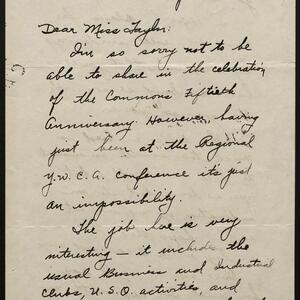 Dear Miss Taylor:
I'm so sorry not to be
able to share in the celebration
of the Commons Fiftieth
Anniversary. However, having
just been at the Regional
Y.W.C.A. conference it's just
an impossibility.
The job here is very
interesting — it includes the
usual Business and Industrial
Clubs, U.S.O. activities, and